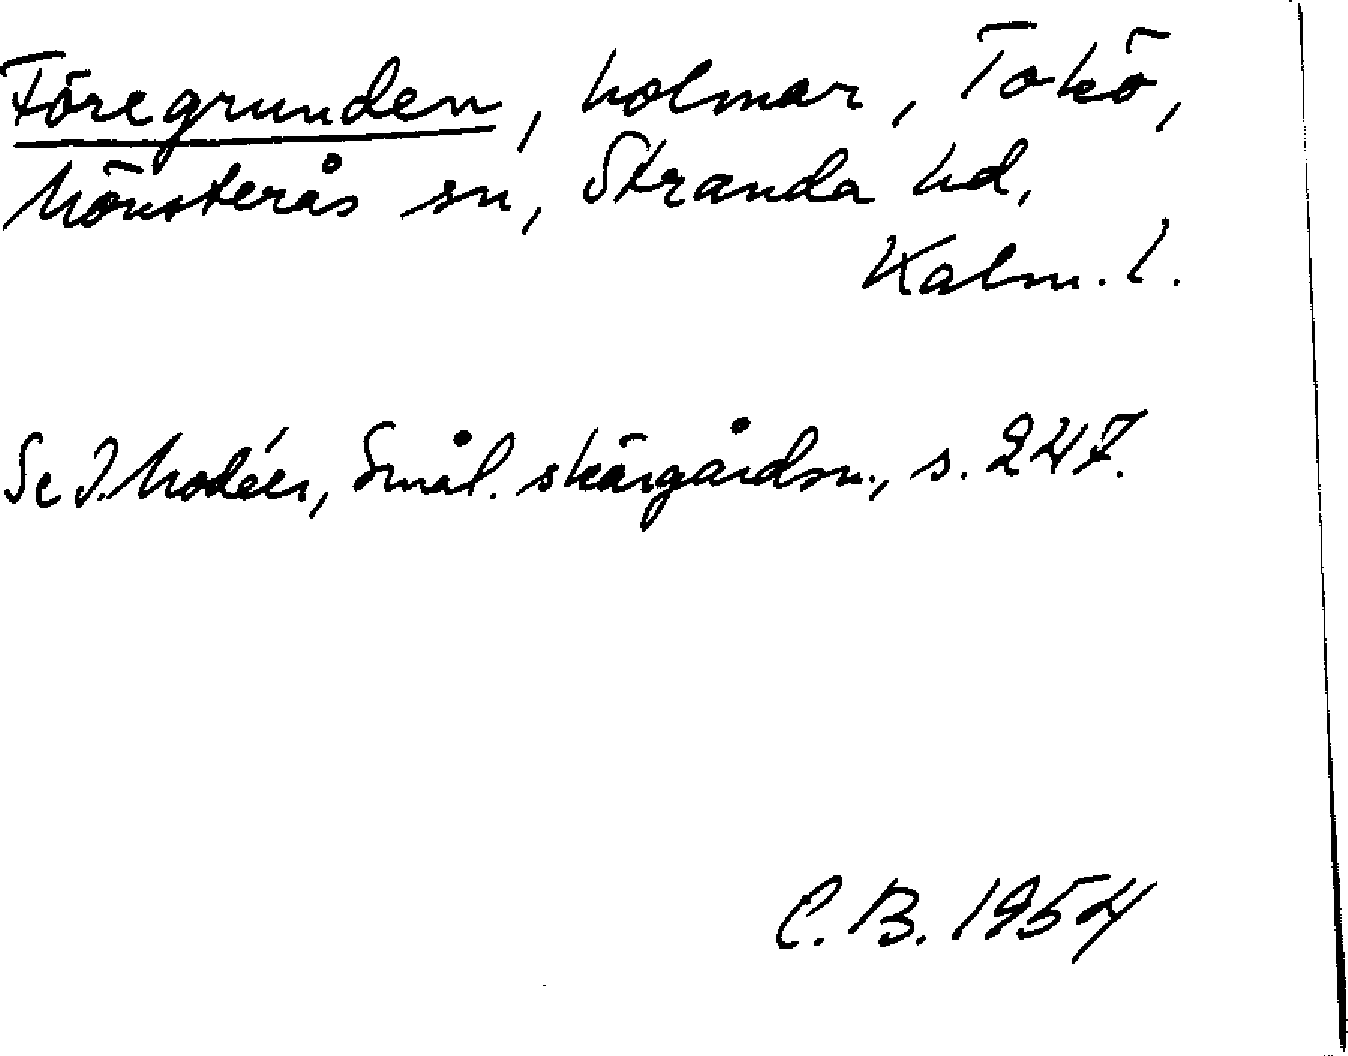 Föregrunden, holmar, Tokö,
Mönsterås sn, Stranda hd,
Kalm. l.
Se I. Modéer, Smål. skärgårdsn., s. 247.
C. B. 1954